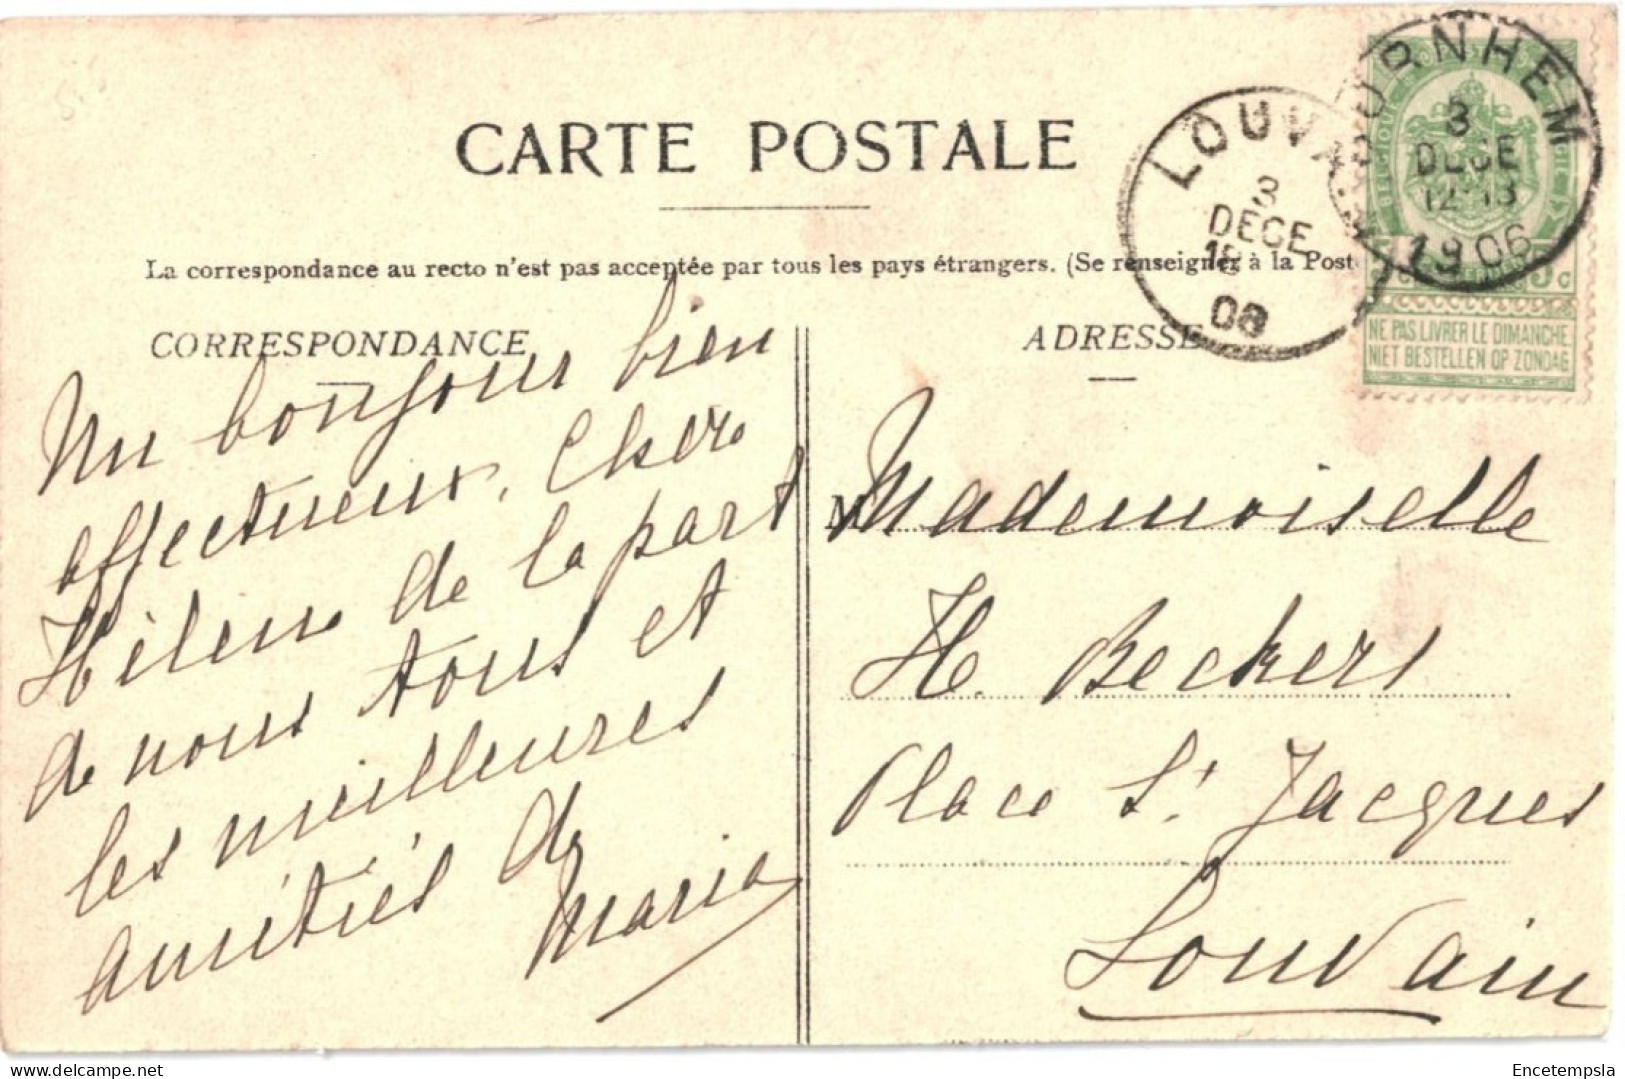 CARTE POSTALE
La correspondance au recto n'est pas acceptée par tous les pays étrangers. (Se renseigner à la Post
CORRESPONDANCE
Un bonjour bien
affectueux, Chère
Hélène de la part
de nous tous et
les meilleures
amitiés de
Maria
ADRESSE
Mademoiselle
H. Beckers
Place St Jacques
Louvain
LOUVA
3
DECE
08
3
DECE
1906
BELGIQUE
NE PAS LIVRER LE DIMANCHE
NIET BESTELLEN OP ZONDAG
Encetempsla